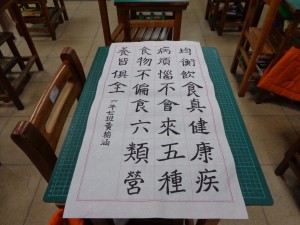 均衡飲食真健康疾
病煩惱不會來五種
食物不偏食六類營
養皆俱全
六年七班黃楡涵